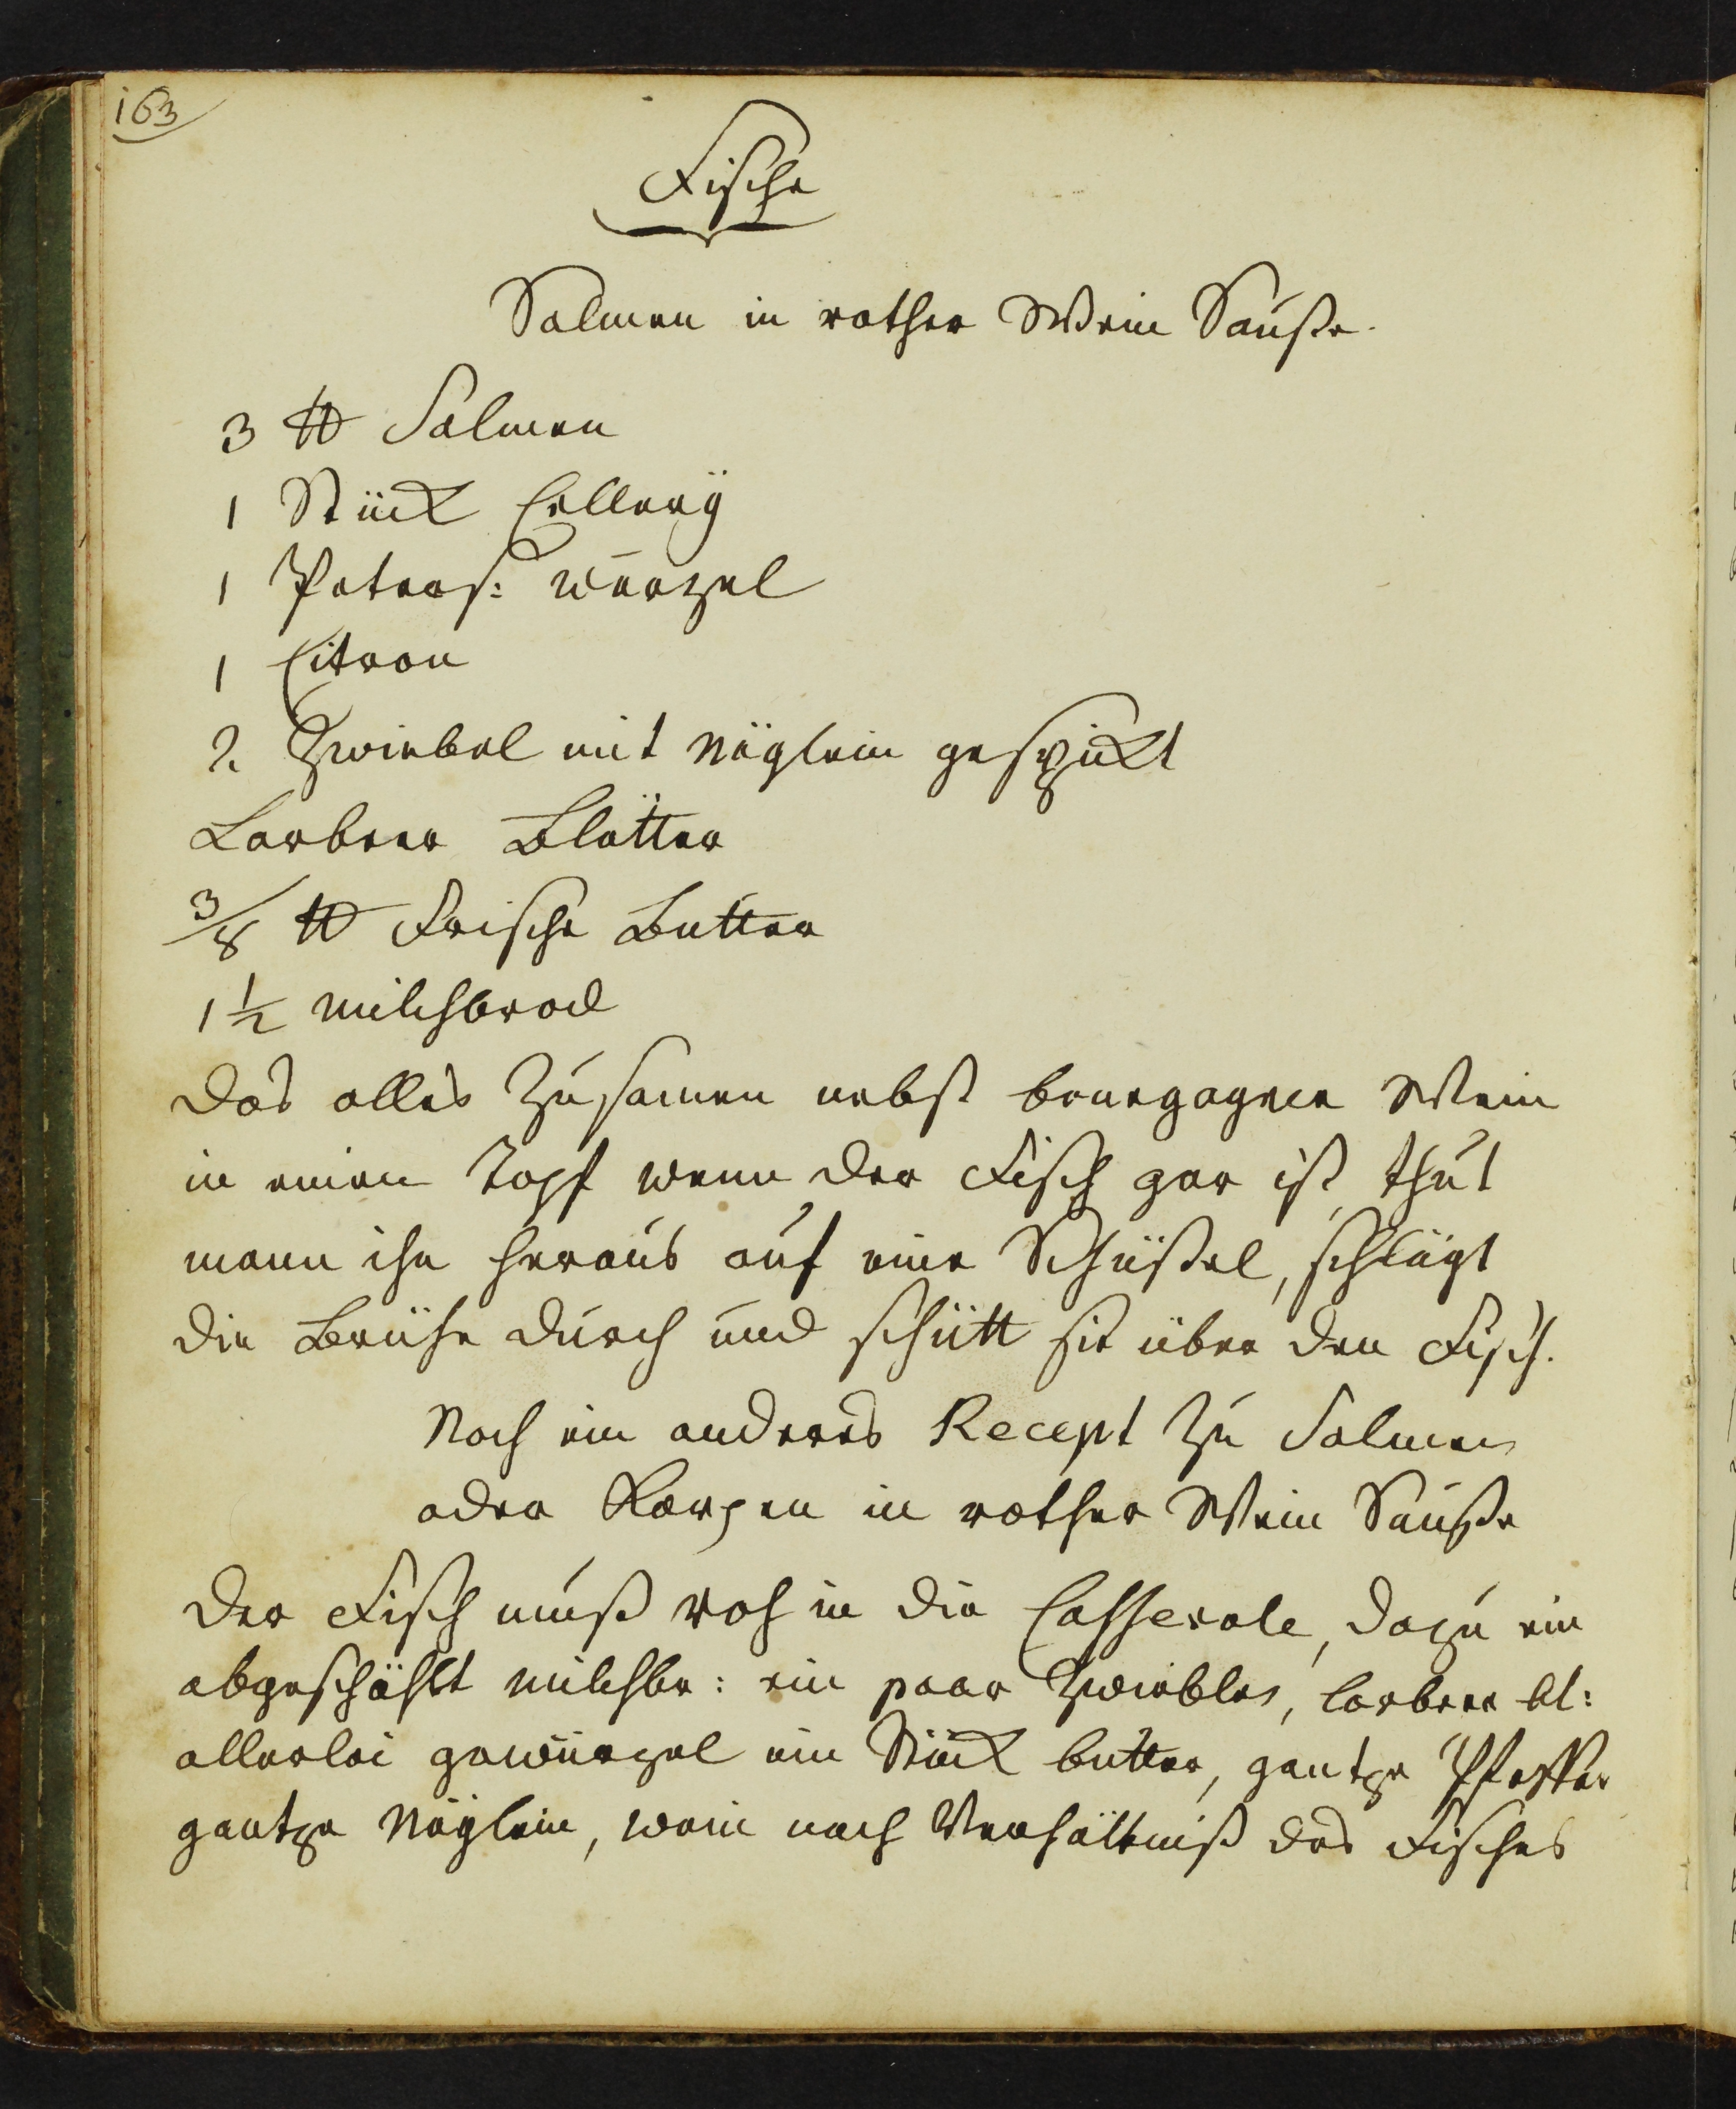 163
Fische
Salmen in rother Wein Sauße.
3 ℔ Salmen
1 Stück Cellerÿ
1 Peters: wurzel
1 Citron
2 Zwiebel mit Näglein gespickt
Lorbeer Blätter
3/8 ℔ Frische Butter
1 1/2 Milchbrod
das alles zusamen nebst Wein
in einen Topf wenn der Fisch gar ist, thut
mann ihn heraus auf eine Schüßel, schlägt
die Brühe durch und schütt sie über den Fisch.
Noch ein anderes Recept zu Salmen
oder Karpen in rother Wein Sauße
Der Fisch muß roh in die Casserole, dazu ein
abgeschählt milchbr: ein paar Zwiebles, lorbeer bl:
allerlei gewürzel ein Stück butter, gantze Pfeffer
gantze Näglein, wein nach Verhältniß des Fisches